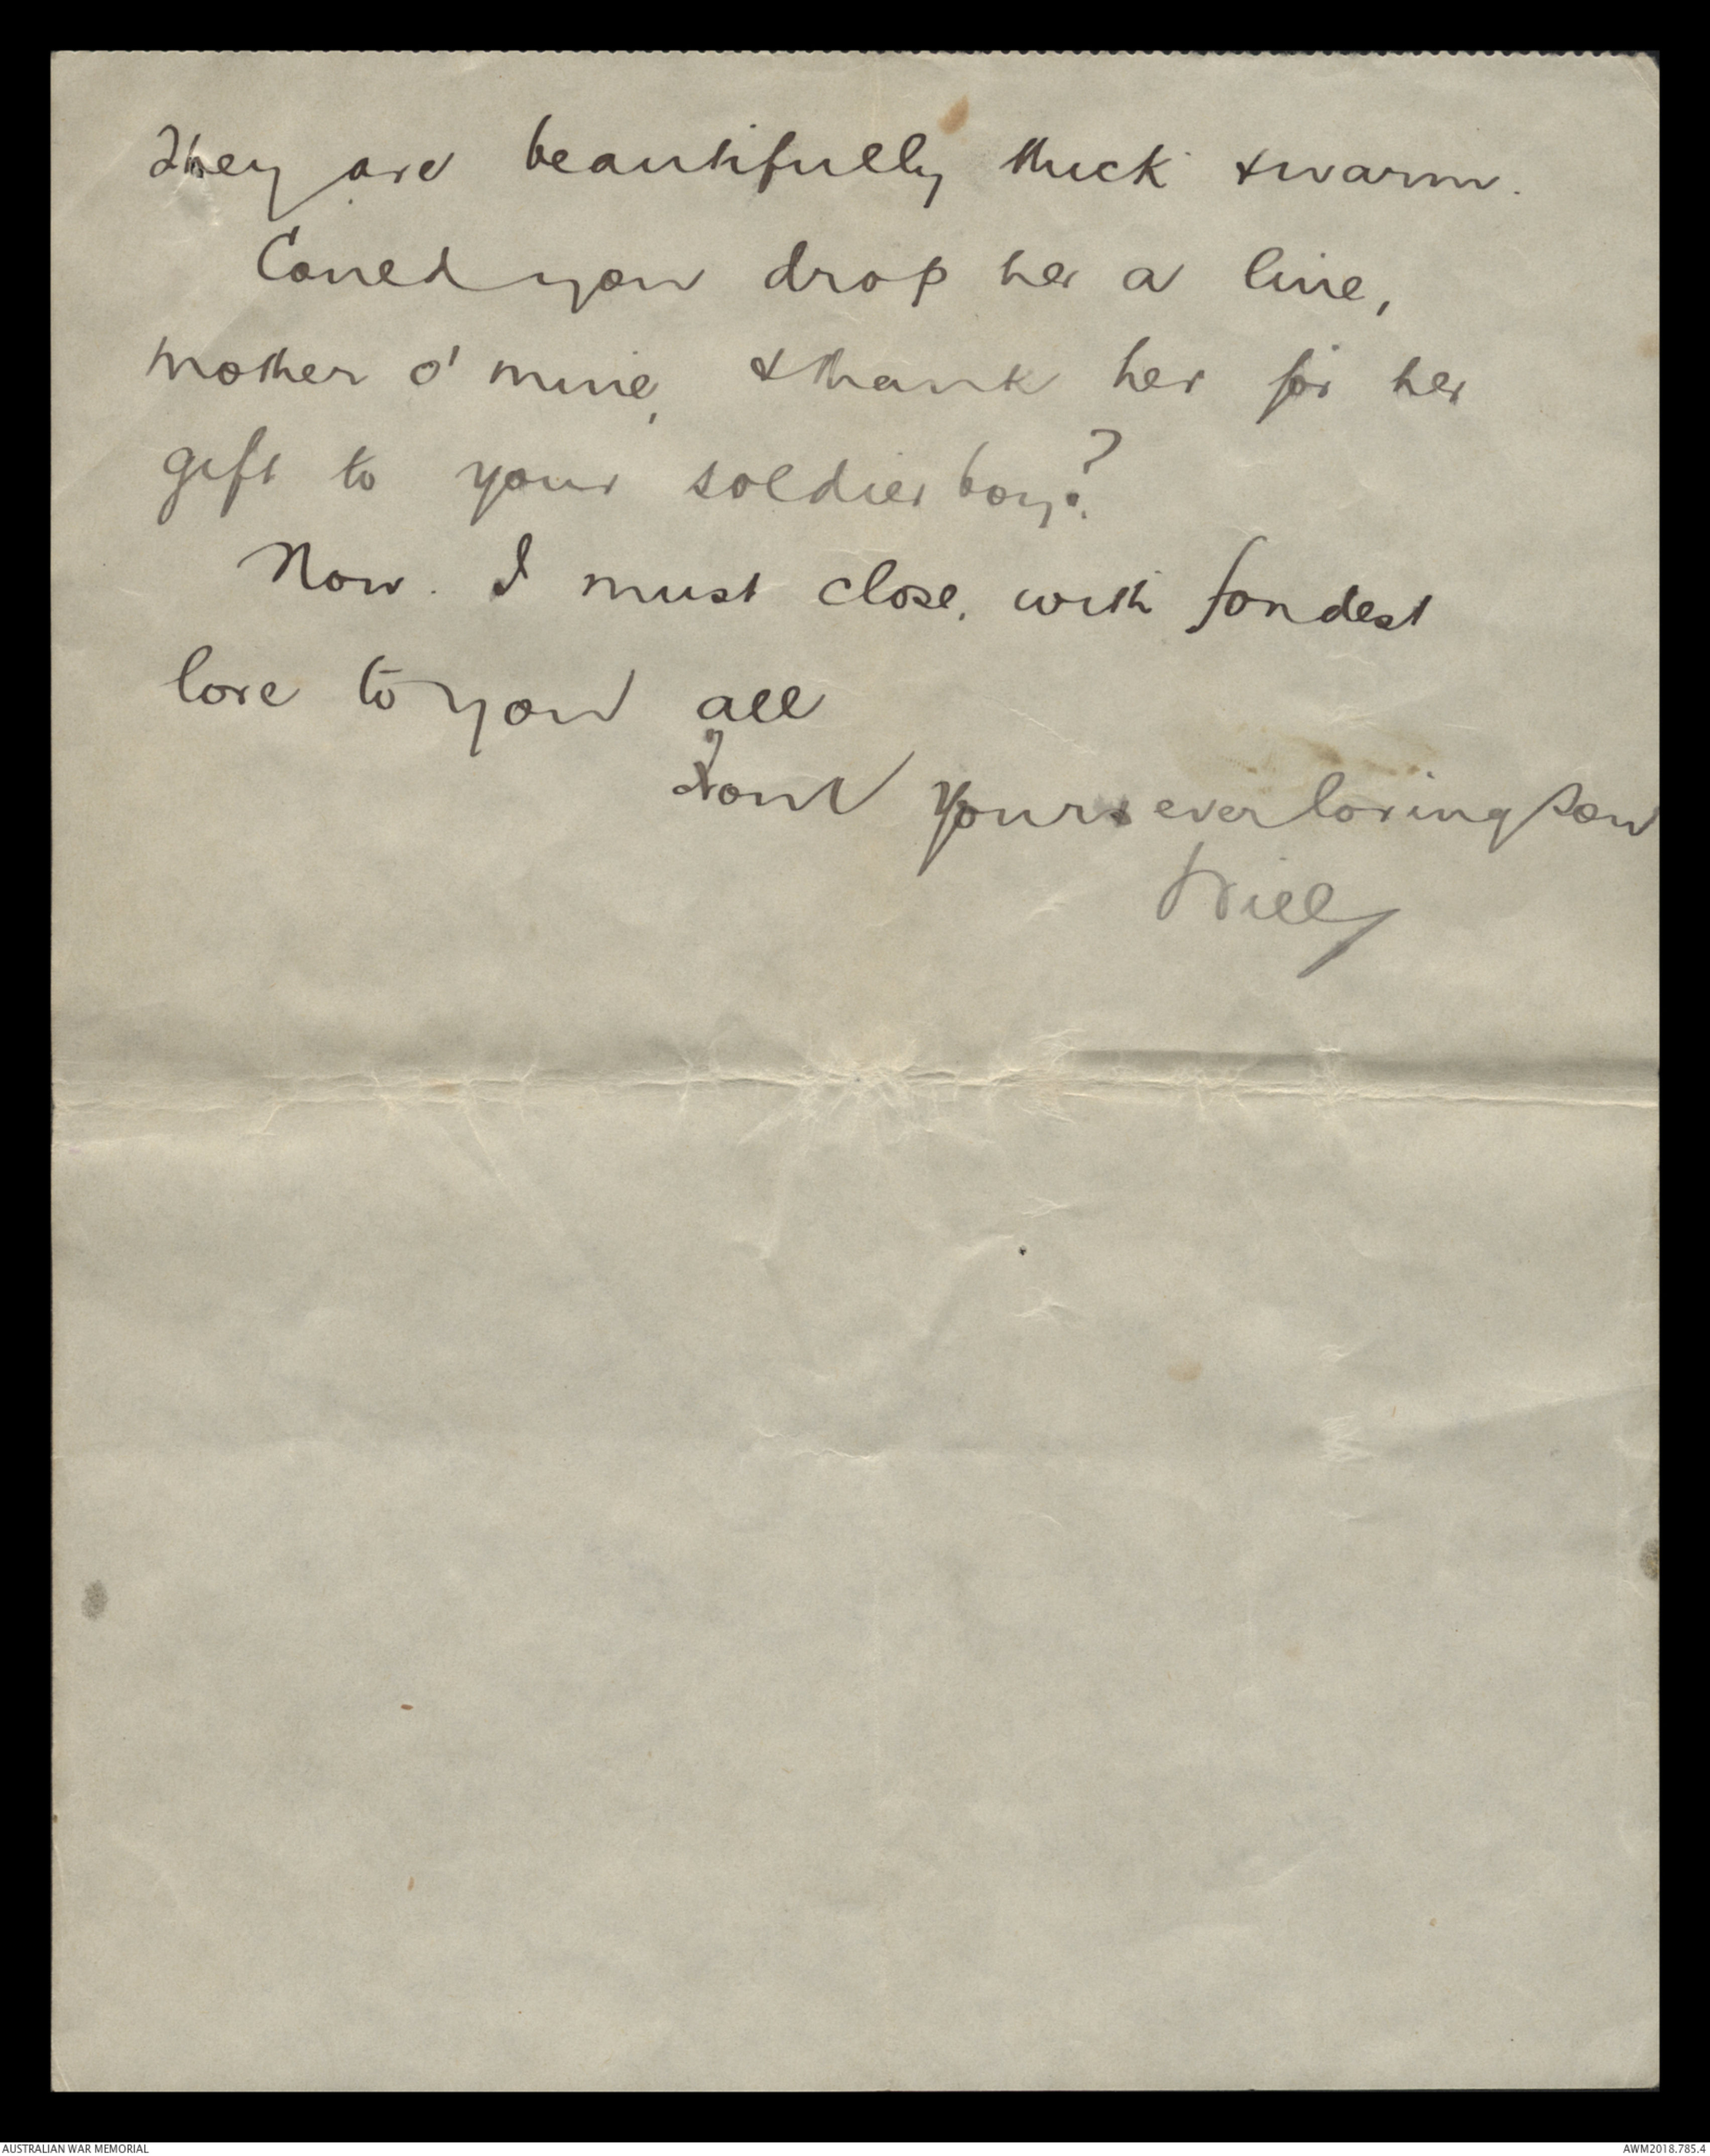 They are beautifully thick & warm.
Could you drop her a line,
mother o' mine, & thank her for her
gift to your soldier boy?
Now. I must close, with fondest
love to you all
from Yours ever loving son
Will
AUSTRALIAN WAR MEMORIAL
AWM2018.785.4